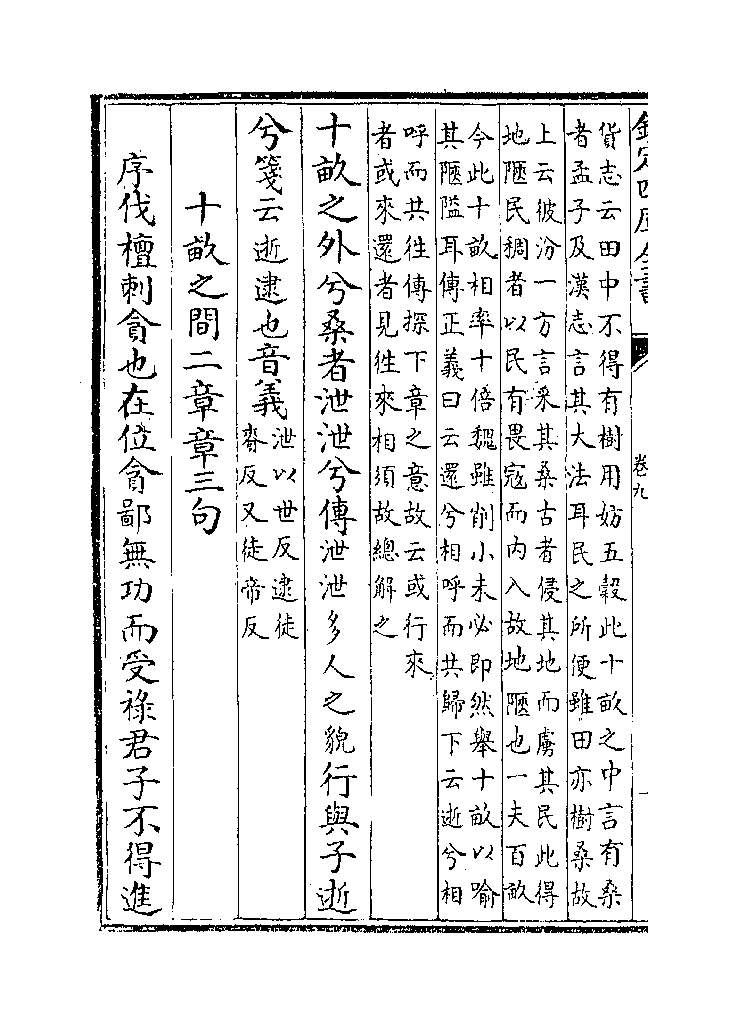 欽定四庫全書 卷九
貨志云田中不得有樹用妨五穀此十畝之中言有桑
者孟子及漢志言其大法耳民之所便雖田亦樹桑故
上云彼汾一方言采其桑古者侵其地而虜其民此得
地陿民稠者以民有畏寇而內入故地陿也一夫百畝
今此十畝相率十倍魏雖削小未必即然舉十畝以喻
其陿隘耳傳正義曰云還兮相呼而共歸下云逝兮相
呼而共往傳探下章之意故云或行來
者或來還者見往來相須故總解之
十畝之外兮桑者泄泄兮傳泄泄多人之貌行與子逝
兮箋云逝逮也音義泄以世反逮徒賚反又徒帝反
十畝之間二章章三句
序伐檀刺貪也在位貪鄙無功而受祿君子不得進